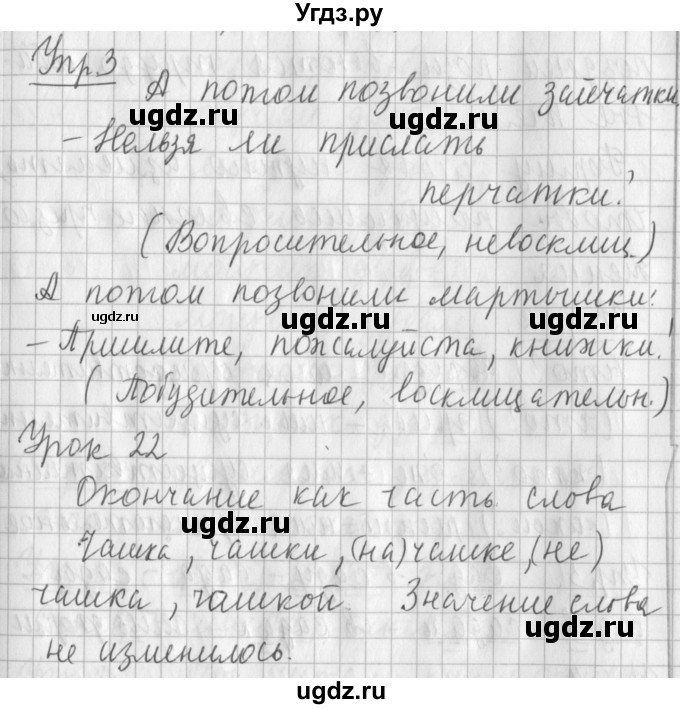 Угдз.ру
Упр.3
А потом позвонили зайчатки
ugdz.ru ugdz.ru
- Нельзя ли прислать
перчатки!
(Вопросительное, невосклиц.)
ugdz.ru
А потом позвонили мартышки:
ugdz.ru ugdz.ru
- Пришлите, пожалуйста, книжки!
(Побудительное, восклицательн.)
ugdz.ru
Урок 22
Окончание как часть слова
ugdz.ru
Чашка, чашки, (на) чашке, (не)
чашка, чашкой. Значение слова
ugdz.ru ugdz.ru
не изменилось.
ugdz.ru